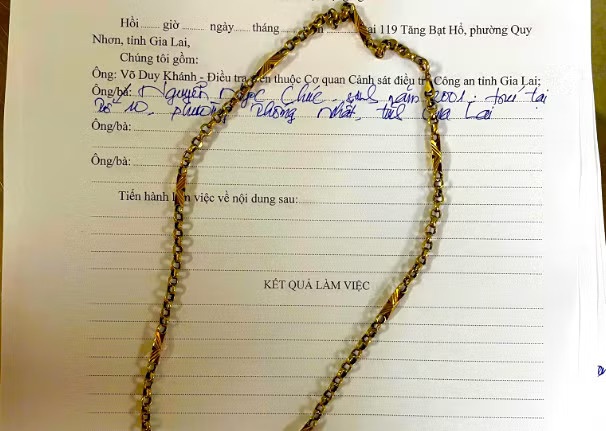 Hồi ...... giờ ...... ngày ...... tháng ...... tại 119 Tăng Bạt Hổ, phường Quy
Nhơn, tỉnh Gia Lai,
Chúng tôi gồm:
Ông: Võ Duy Khánh - Điều tra viên thuộc Cơ quan Cảnh sát điều tra Công an tỉnh Gia Lai;
Ông/bà: Nguyễn Ngọc Chức, sinh năm 2001. trú tại
tổ 10, phường Thống Nhất, tỉnh Gia Lai
Ông/bà:
Ông/bà:
Tiến hành làm việc về nội dung sau:
KẾT QUẢ LÀM VIỆC